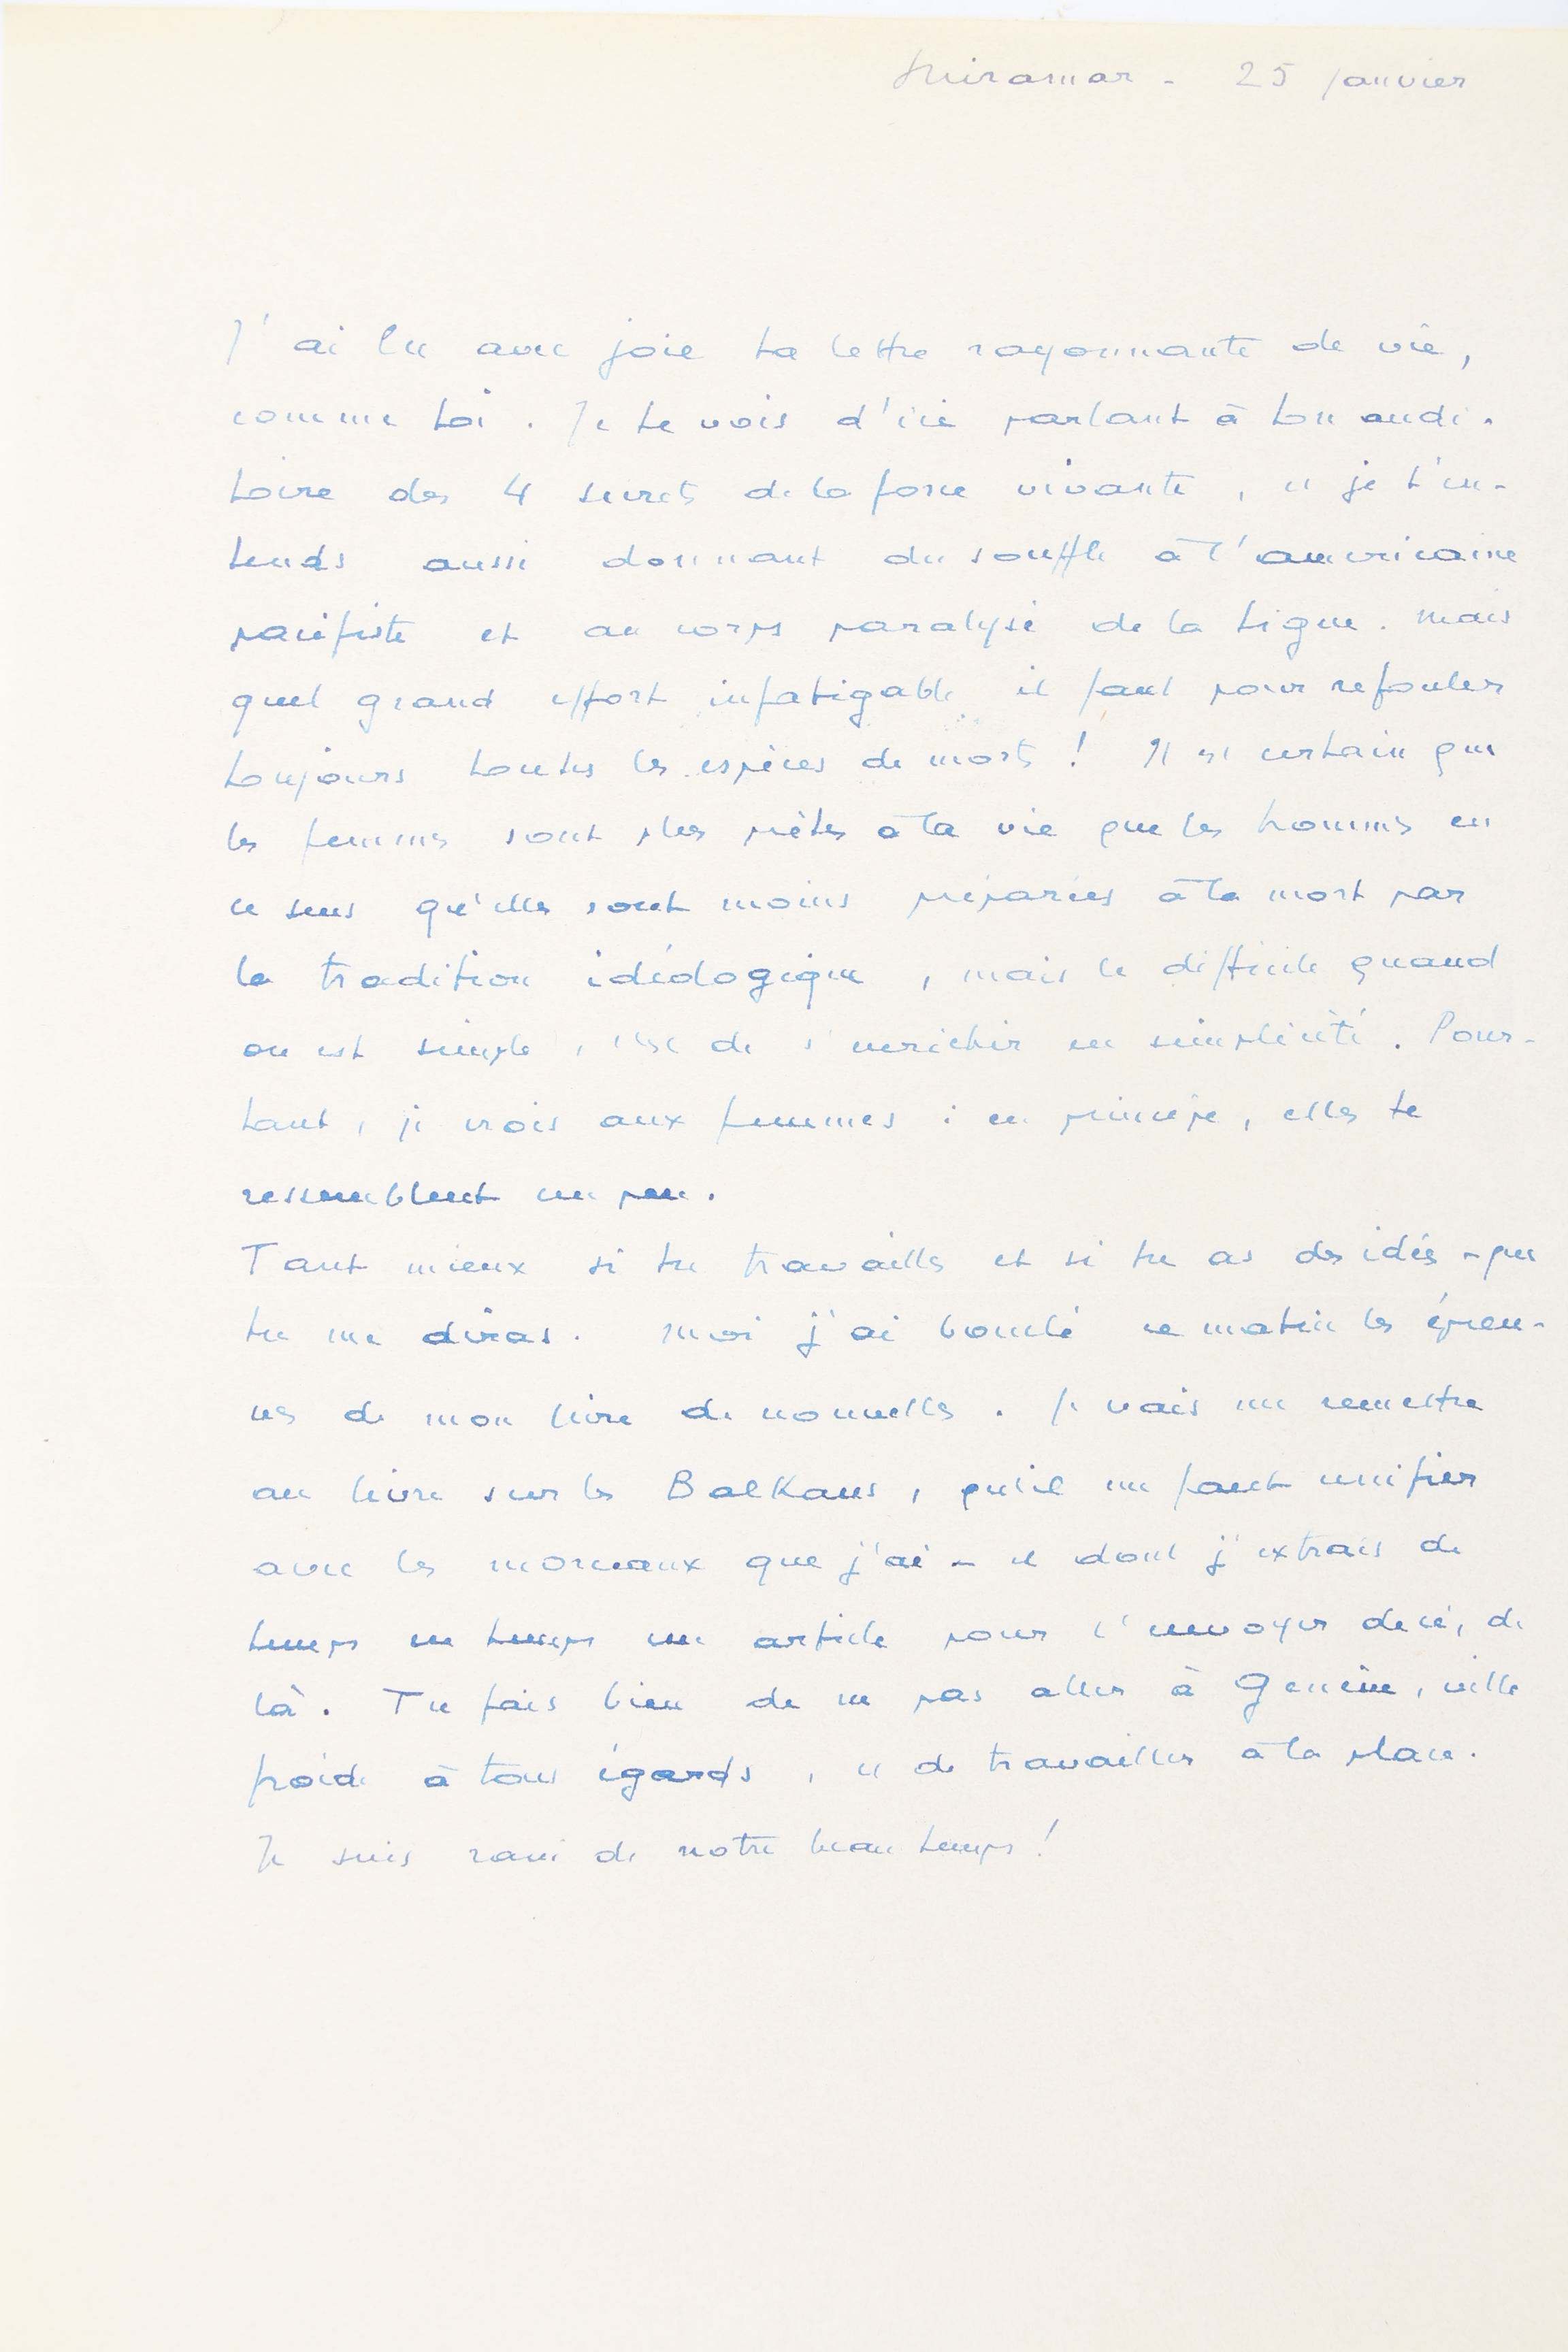 Miramar - 25 janvier
J'ai lu avec joie ta lettre rayonnante de vie,
comme toi. Je te vois d'ici parlant à ton audi-
toire des 4 secrets de la force vivante, et je t'en-
tends aussi donnant du souffle à l'américaine
pacifiste et au corps paralysé de la Ligue. Mais
quel grand effort infatigable il faut pour refouler
toujours toutes les espèces de morts ! Il est certain que
les femmes sont plus prêtes à la vie que les hommes en
ce sens qu'elles sont moins préparées à la mort par
la tradition idéologique, mais le difficile quand
on est simple, c'est de s'enrichir en simplicité. Pour-
tant, je crois aux femmes : en principe, elles te
ressemblent un peu.
Tant mieux si tu travailles et si tu as des idées - que
tu me diras. Moi j'ai bouclé ce matin les épreu-
ves de mon livre de nouvelles. Je vais me remettre
au livre sur les Balkans, qu'il me faut unifier
avec les morceaux que j'ai - et dont j'extrais de
temps en temps un article pour l'envoyer de ci, de
là. Tu fais bien de ne pas aller à Genève, ville
froide à tous égards, et de travailler à la place.
Je suis ravi de notre beau temps !